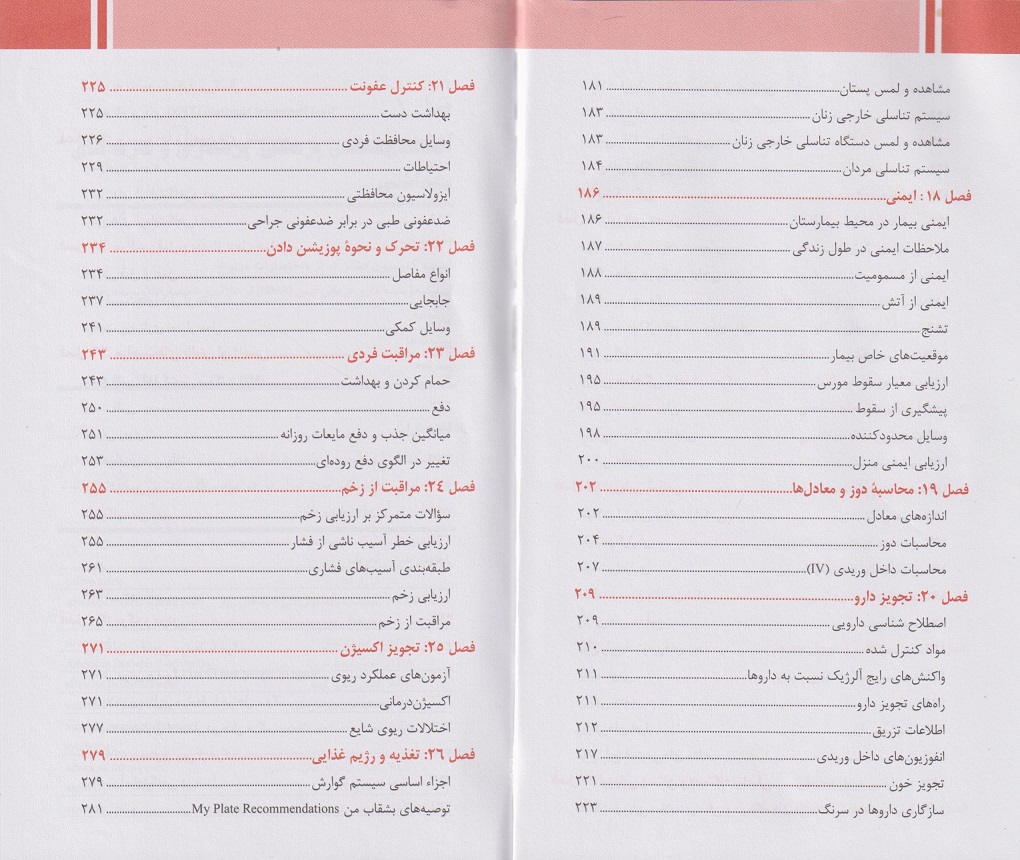 مشاهده و لمس پستان ۱۸۱
سیستم تناسلی خارجی زنان ۱۸۳
مشاهده و لمس دستگاه تناسلی خارجی زنان ۱۸۳
سیستم تناسلی مردان ۱۸۴
فصل ۱۸: ایمنی ۱۸۶
ایمنی بیمار در محیط بیمارستان ۱۸۶
ملاحظات ایمنی در طول زندگی ۱۸۷
ایمنی از مسمومیت ۱۸۸
ایمنی از آتش ۱۸۹
تشنج ۱۸۹
موقعیت‌های خاص بیمار ۱۹۱
ارزیابی معیار سقوط مورس ۱۹۵
پیشگیری از سقوط ۱۹۵
وسایل محدودکننده ۱۹۸
ارزیابی ایمنی منزل ۲۰۰
فصل ۱۹: محاسبهٔ دوز و معادل‌ها ۲۰۲
اندازه‌های معادل ۲۰۲
محاسبات دوز ۲۰۴
محاسبات داخل وریدی (IV) ۲۰۷
فصل ۲۰: تجویز دارو ۲۰۹
اصطلاح شناسی دارویی ۲۰۹
مواد کنترل شده ۲۱۰
واکنش‌های رایج آلرژیک نسبت به داروها ۲۱۱
راه‌های تجویز دارو ۲۱۱
اطلاعات تزریق ۲۱۲
انفوزیون‌های داخل وریدی ۲۱۷
تجویز خون ۲۲۱
سازگاری داروها در سرنگ ۲۲۳
فصل ۲۱: کنترل عفونت ۲۲۵
بهداشت دست ۲۲۵
وسایل محافظت فردی ۲۲۶
احتیاطات ۲۲۹
ایزولاسیون محافظتی ۲۳۲
ضدعفونی طبی در برابر ضدعفونی جراحی ۲۳۲
فصل ۲۲: تحرک و نحوهٔ پوزیشن دادن ۲۳۴
انواع مفاصل ۲۳۴
جابجایی ۲۳۷
وسایل کمکی ۲۴۱
فصل ۲۳: مراقبت فردی ۲۴۳
حمام کردن و بهداشت ۲۴۳
دفع ۲۵۰
میانگین جذب و دفع مایعات روزانه ۲۵۱
تغییر در الگوی دفع روده‌ای ۲۵۳
فصل ۲۴: مراقبت از زخم ۲۵۵
سؤالات متمرکز بر ارزیابی زخم ۲۵۵
ارزیابی خطر آسیب ناشی از فشار ۲۵۵
طبقه‌بندی آسیب‌های فشاری ۲۶۱
ارزیابی زخم ۲۶۳
مراقبت از زخم ۲۶۵
فصل ۲۵: تجویز اکسیژن ۲۷۱
آزمون‌های عملکرد ریوی ۲۷۱
اکسیژن‌درمانی ۲۷۱
اختلالات ریوی شایع ۲۷۷
فصل ۲۶: تغذیه و رژیم غذایی ۲۷۹
اجزاء اساسی سیستم گوارش ۲۷۹
توصیه‌های بشقاب من My Plate Recommendations ۲۸۱